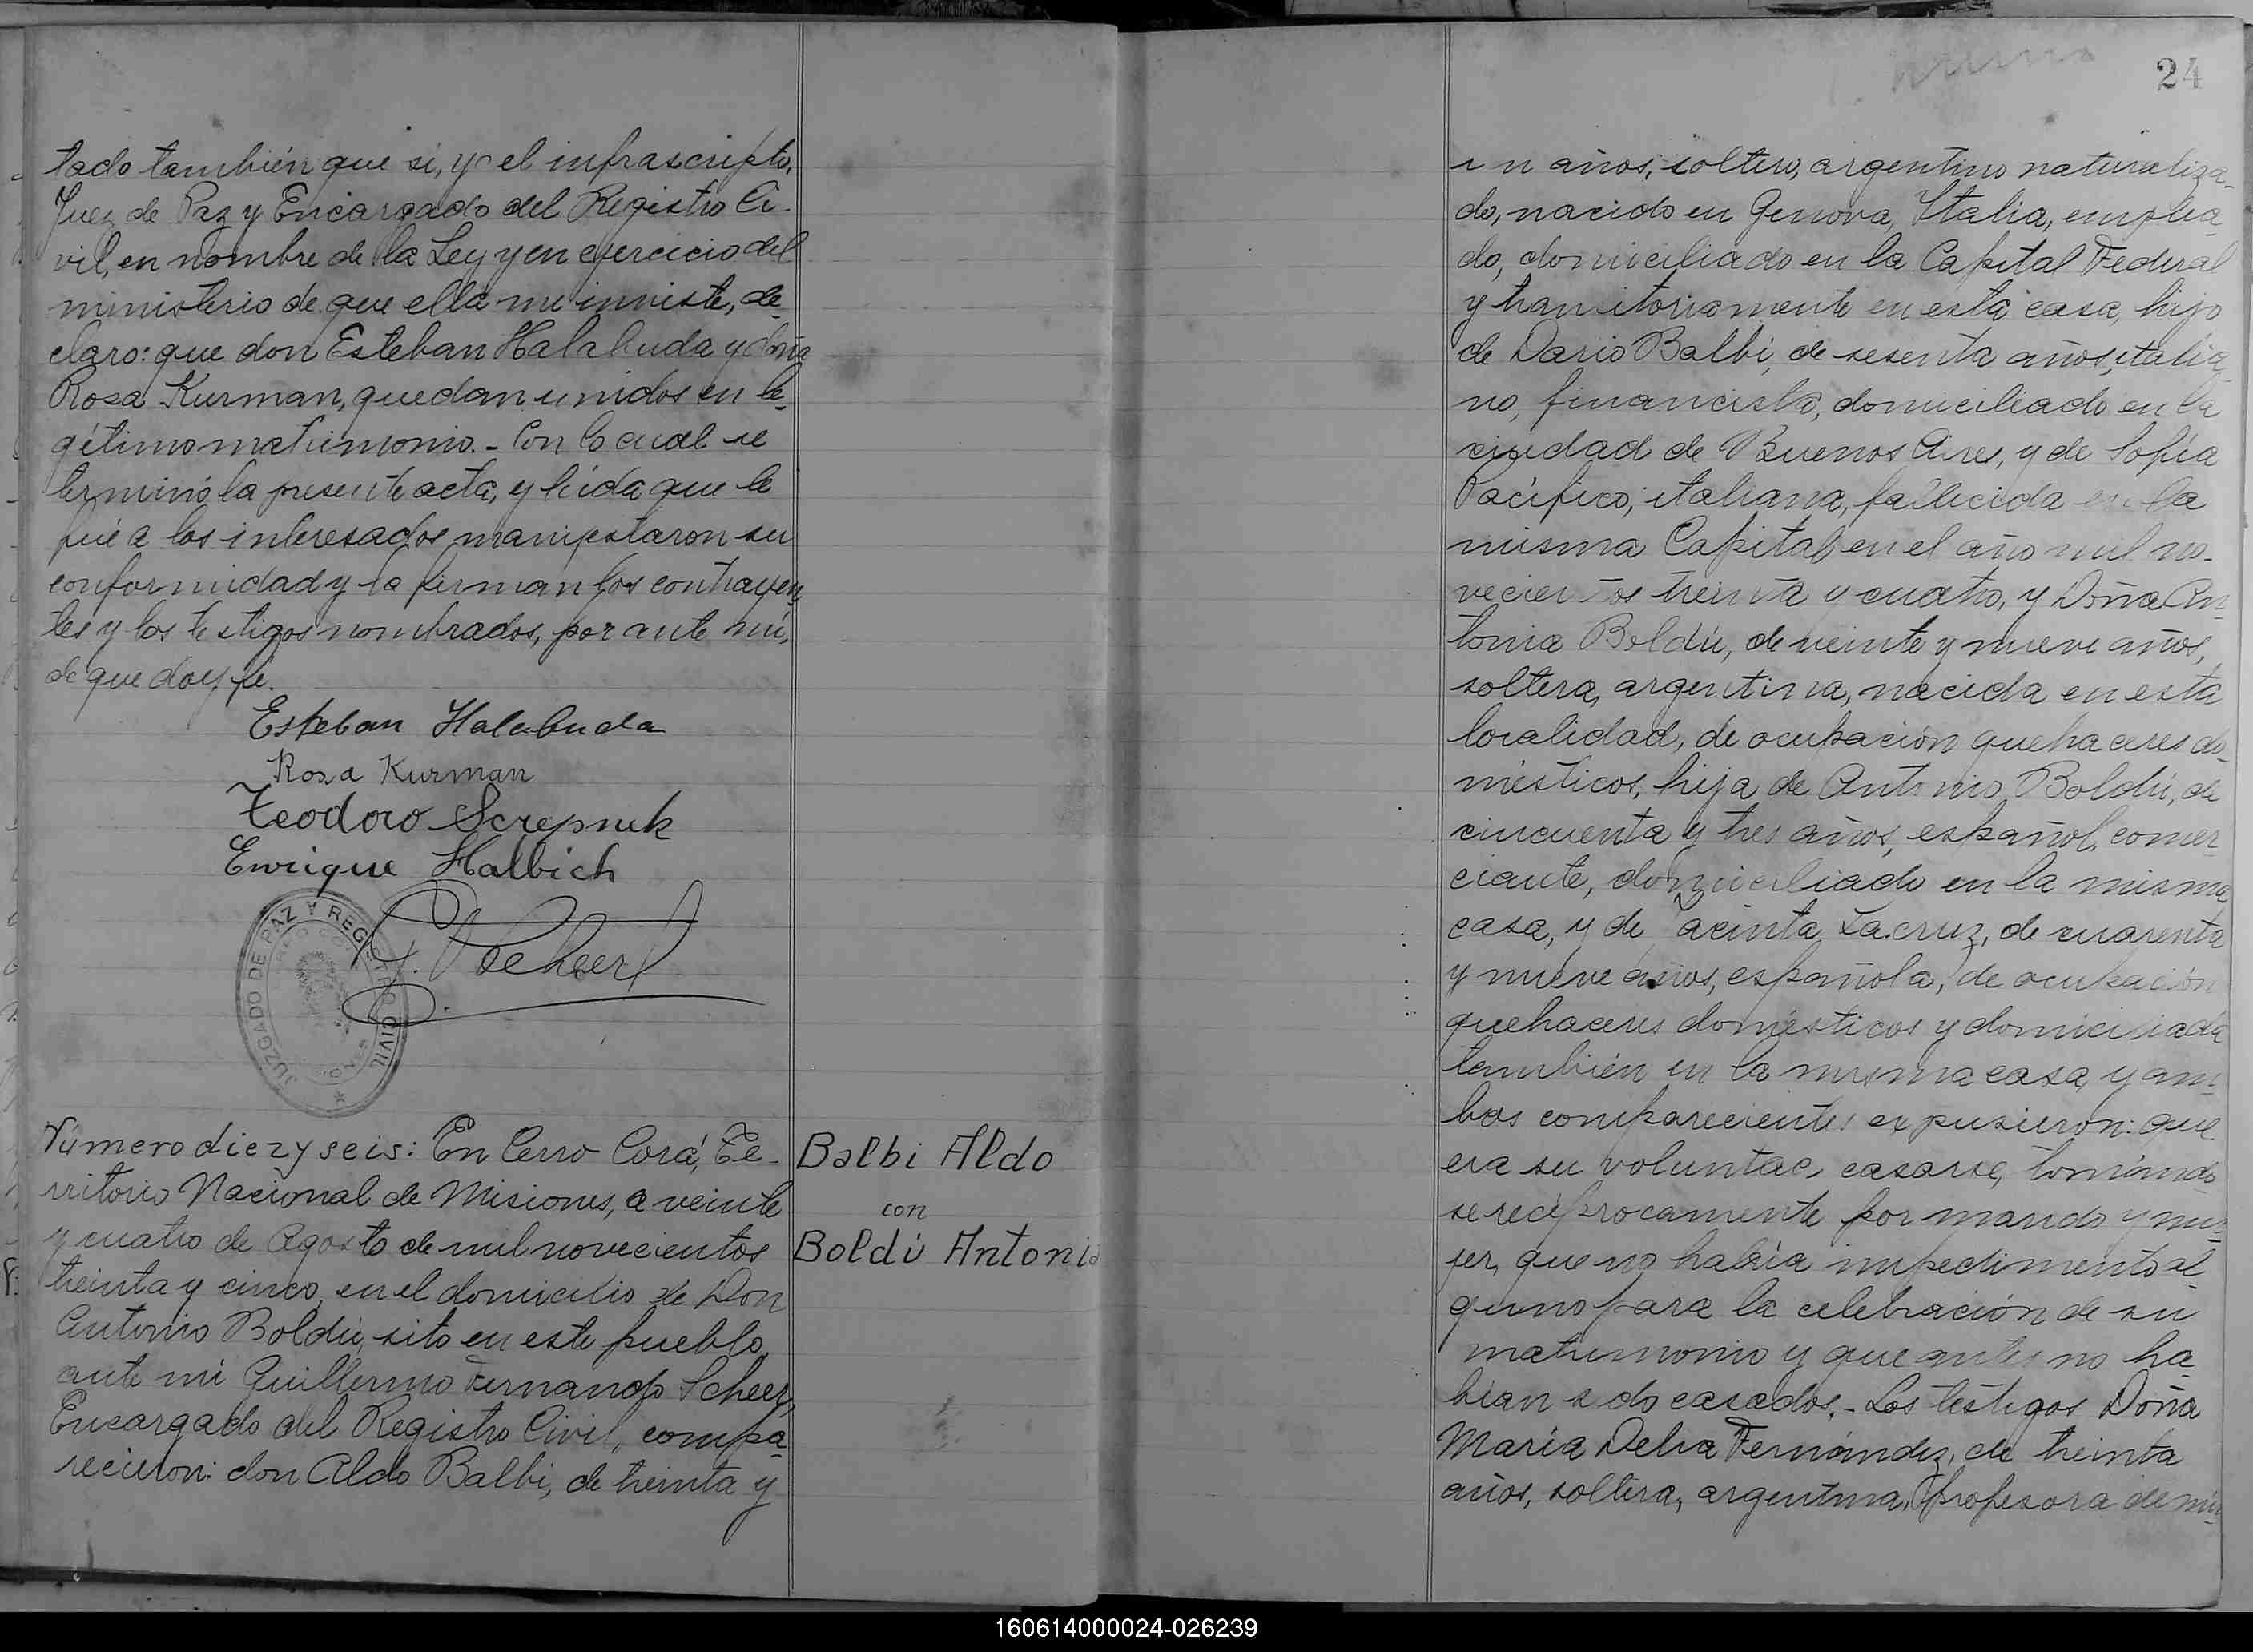 tado también que si, yo el infrascripto,
Juez de Paz y Encargado del Registro Ci-
vil, en nombre de la Ley y en ejercicio del
ministerio de que ella me inviste, de-
claro: que don Esteban Halabuda y doña
Rosa Kurman, quedan unidos en le-
gítimo matrimonio. - Con lo cual se
terminó la presente acta, y leída que le
fué a los interesados manifestaron su
conformidad y la firman los contrayen-
tes y los testigos nombrados, por ante mí,
de que doy fé.
Esteban Halabuda
Rosa Kurman
Teodoro Screpnek
Enrique Halbich
G. F. Scheer
JUZGADO DE PAZ Y REGISTRO CIVIL
Número diez y seis: En Cerro Corá, Te-
rritorio Nacional de Misiones, a veinte
y cuatro de Agosto de mil novecientos
treinta y cinco, en el domicilio de Don
Antonio Boldú, sito en este pueblo,
ante mí Guillermo Fernando Scheer,
Encargado del Registro Civil, compa-
recieron: don Aldo Balbi, de treinta y
Balbi Aldo
con
Boldú Antonia
24
un años, soltero, argentino naturaliza-
do, nacido en Genova, Italia, emplea-
do, domiciliado en la Capital Federal
y transitoriamente en esta casa, hijo
de Dario Balbi, de sesenta años, italia-
no, financista, domiciliado en la
ciudad de Buenos Aires, y de Sofía
Pacífico, italiana, fallecida en la
misma Capital en el año mil no-
vecientos treinta y cuatro, y Doña An-
tonia Boldú, de veinte y nueve años,
soltera, argentina, nacida en esta
localidad, de ocupación quehaceres do-
mésticos, hija de Antonio Boldú, de
cincuenta y tres años, español, comer-
ciante, domiciliado en la misma
casa, y de Jacinta Lacruz, de cuarenta
y nueve años, española, de ocupación
quehaceres domésticos y domiciliada
también en la misma casa, y am-
bos comparecientes expusieron: que
era su voluntad casarse, tomándo-
se recíprocamente por marido y mu-
jer, que no había impedimento al-
guno para la celebración de su
matrimonio y que antes no ha-
bían sido casados. - Los testigos Doña
María Delia Fernández, de treinta
años, soltera, argentina, profesora de mú-
160614000024-026239